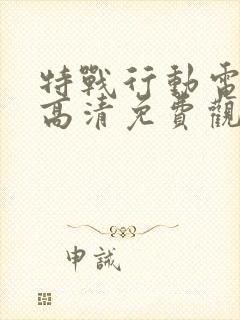 特戰行動電
高清免費觀
申誡